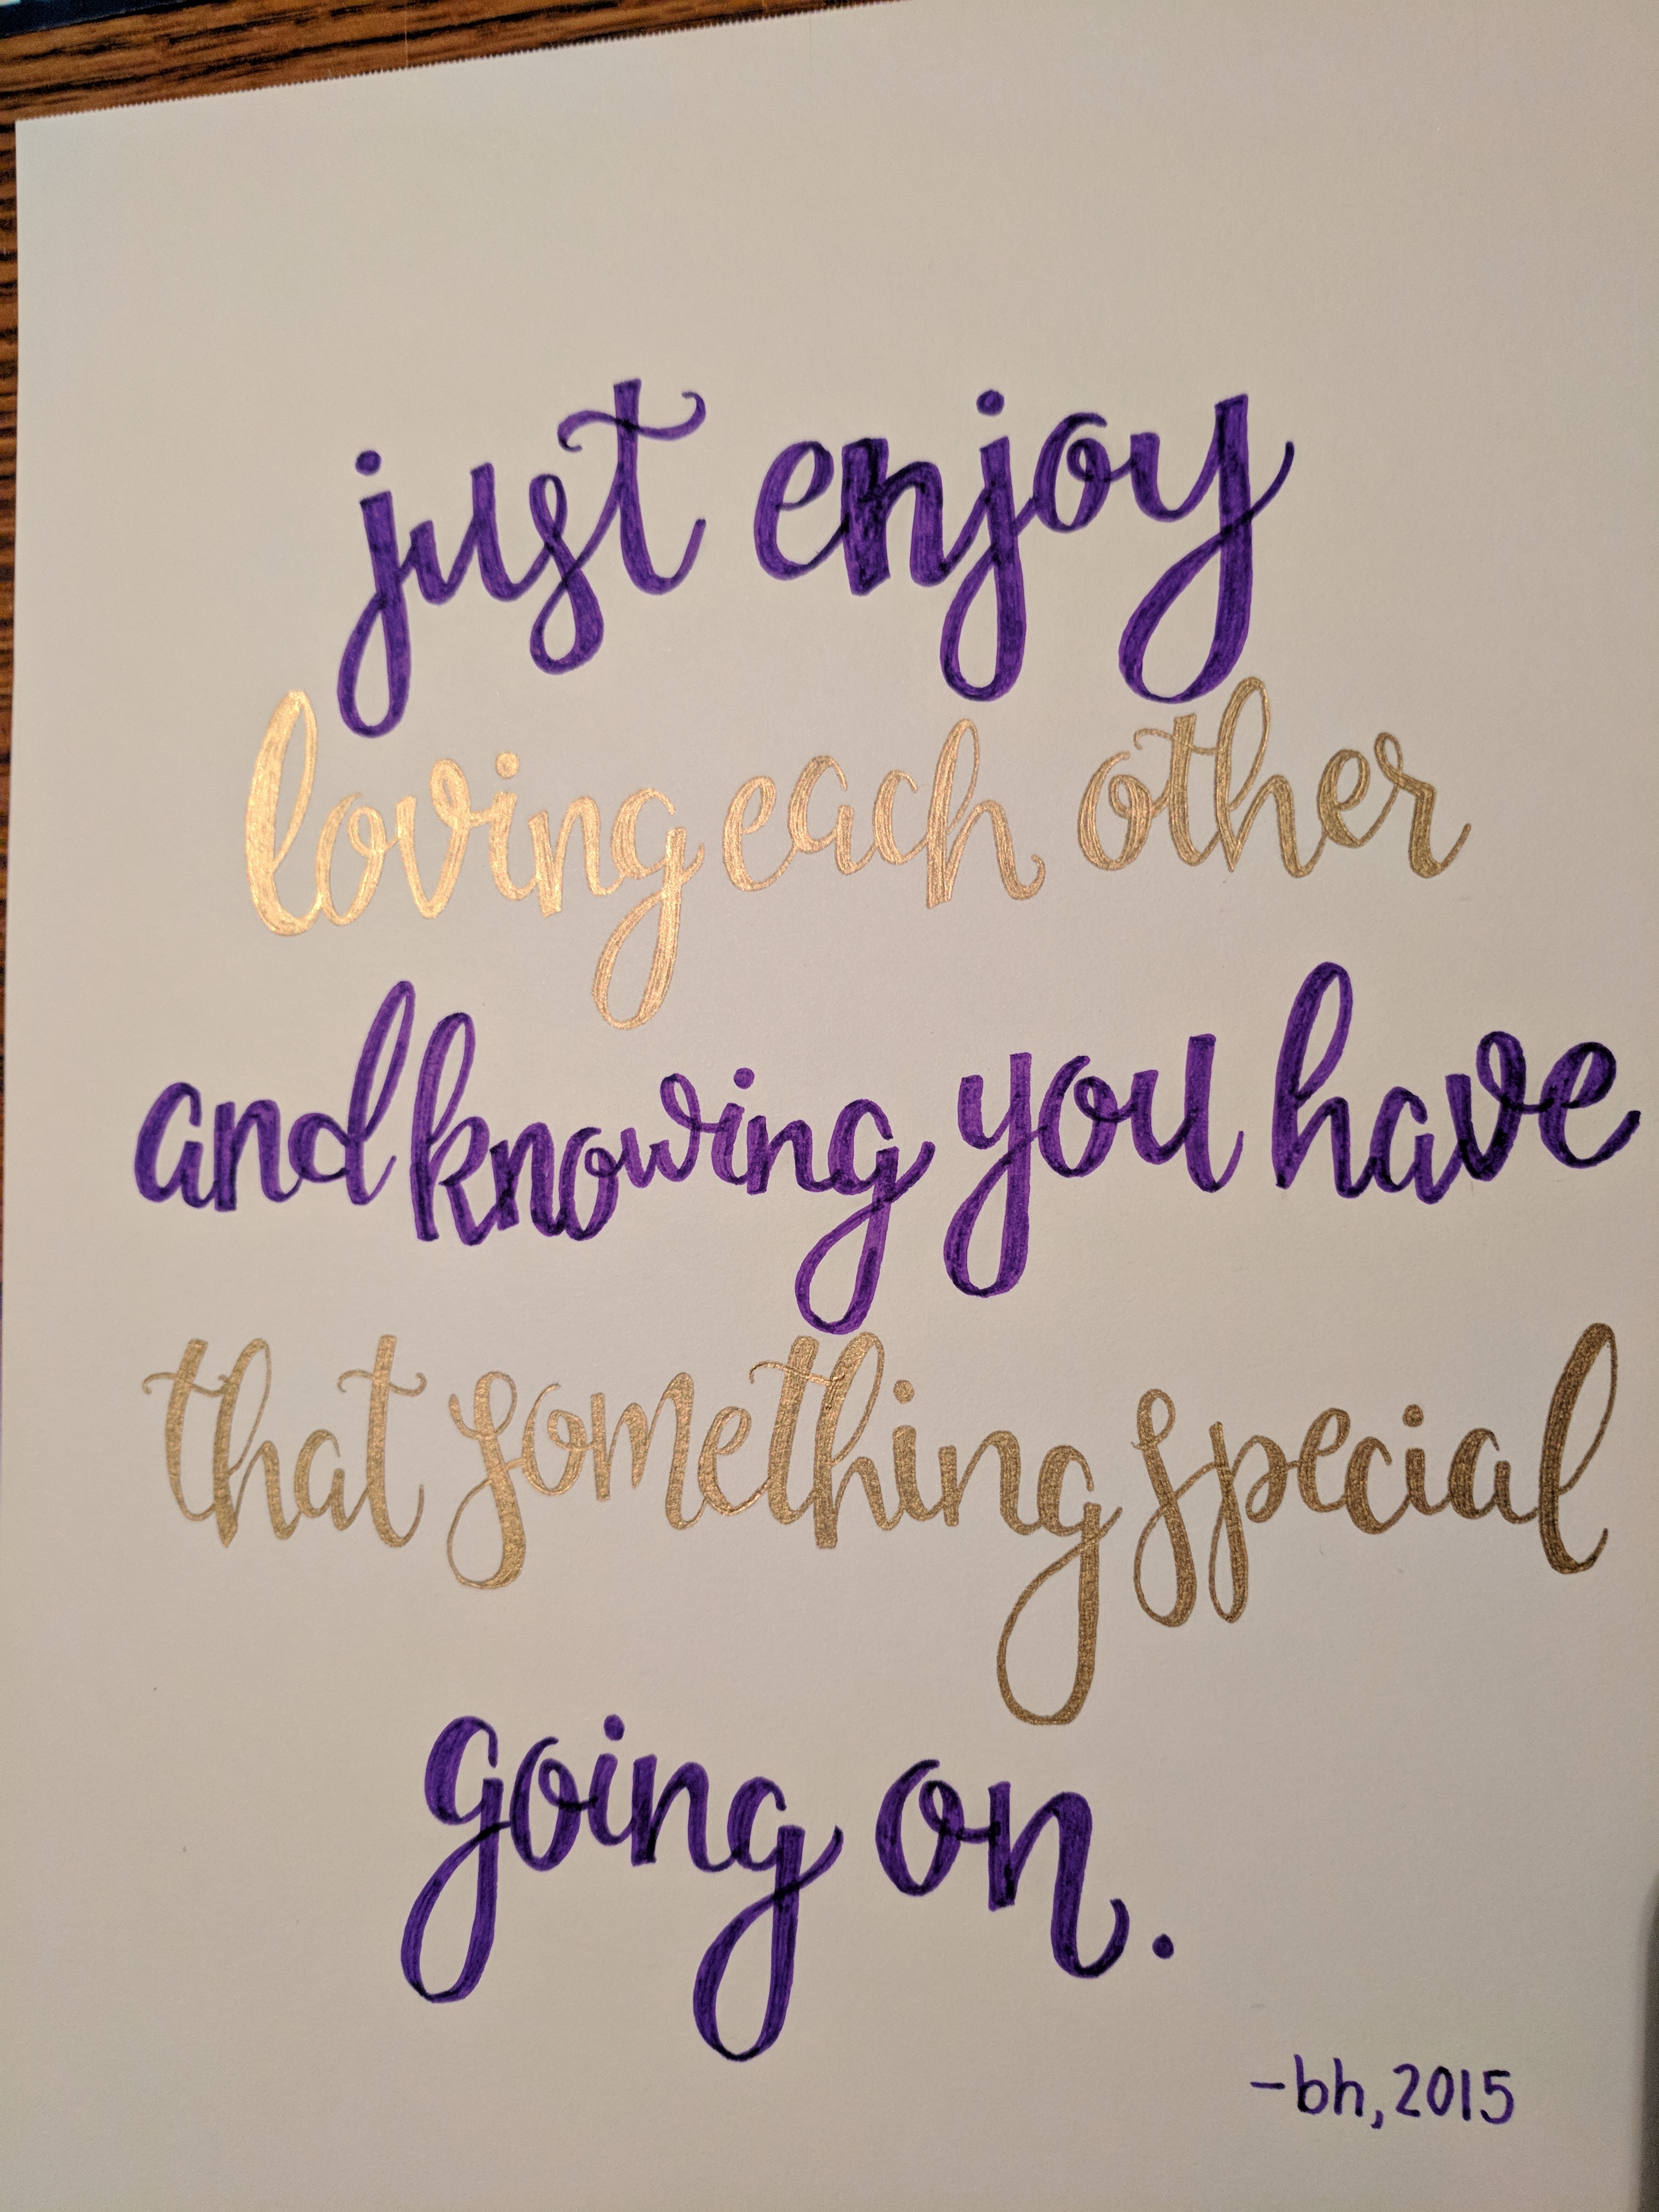 just enjoy
loving each other
and knowing you have
that something special
going on.
-bh, 2015